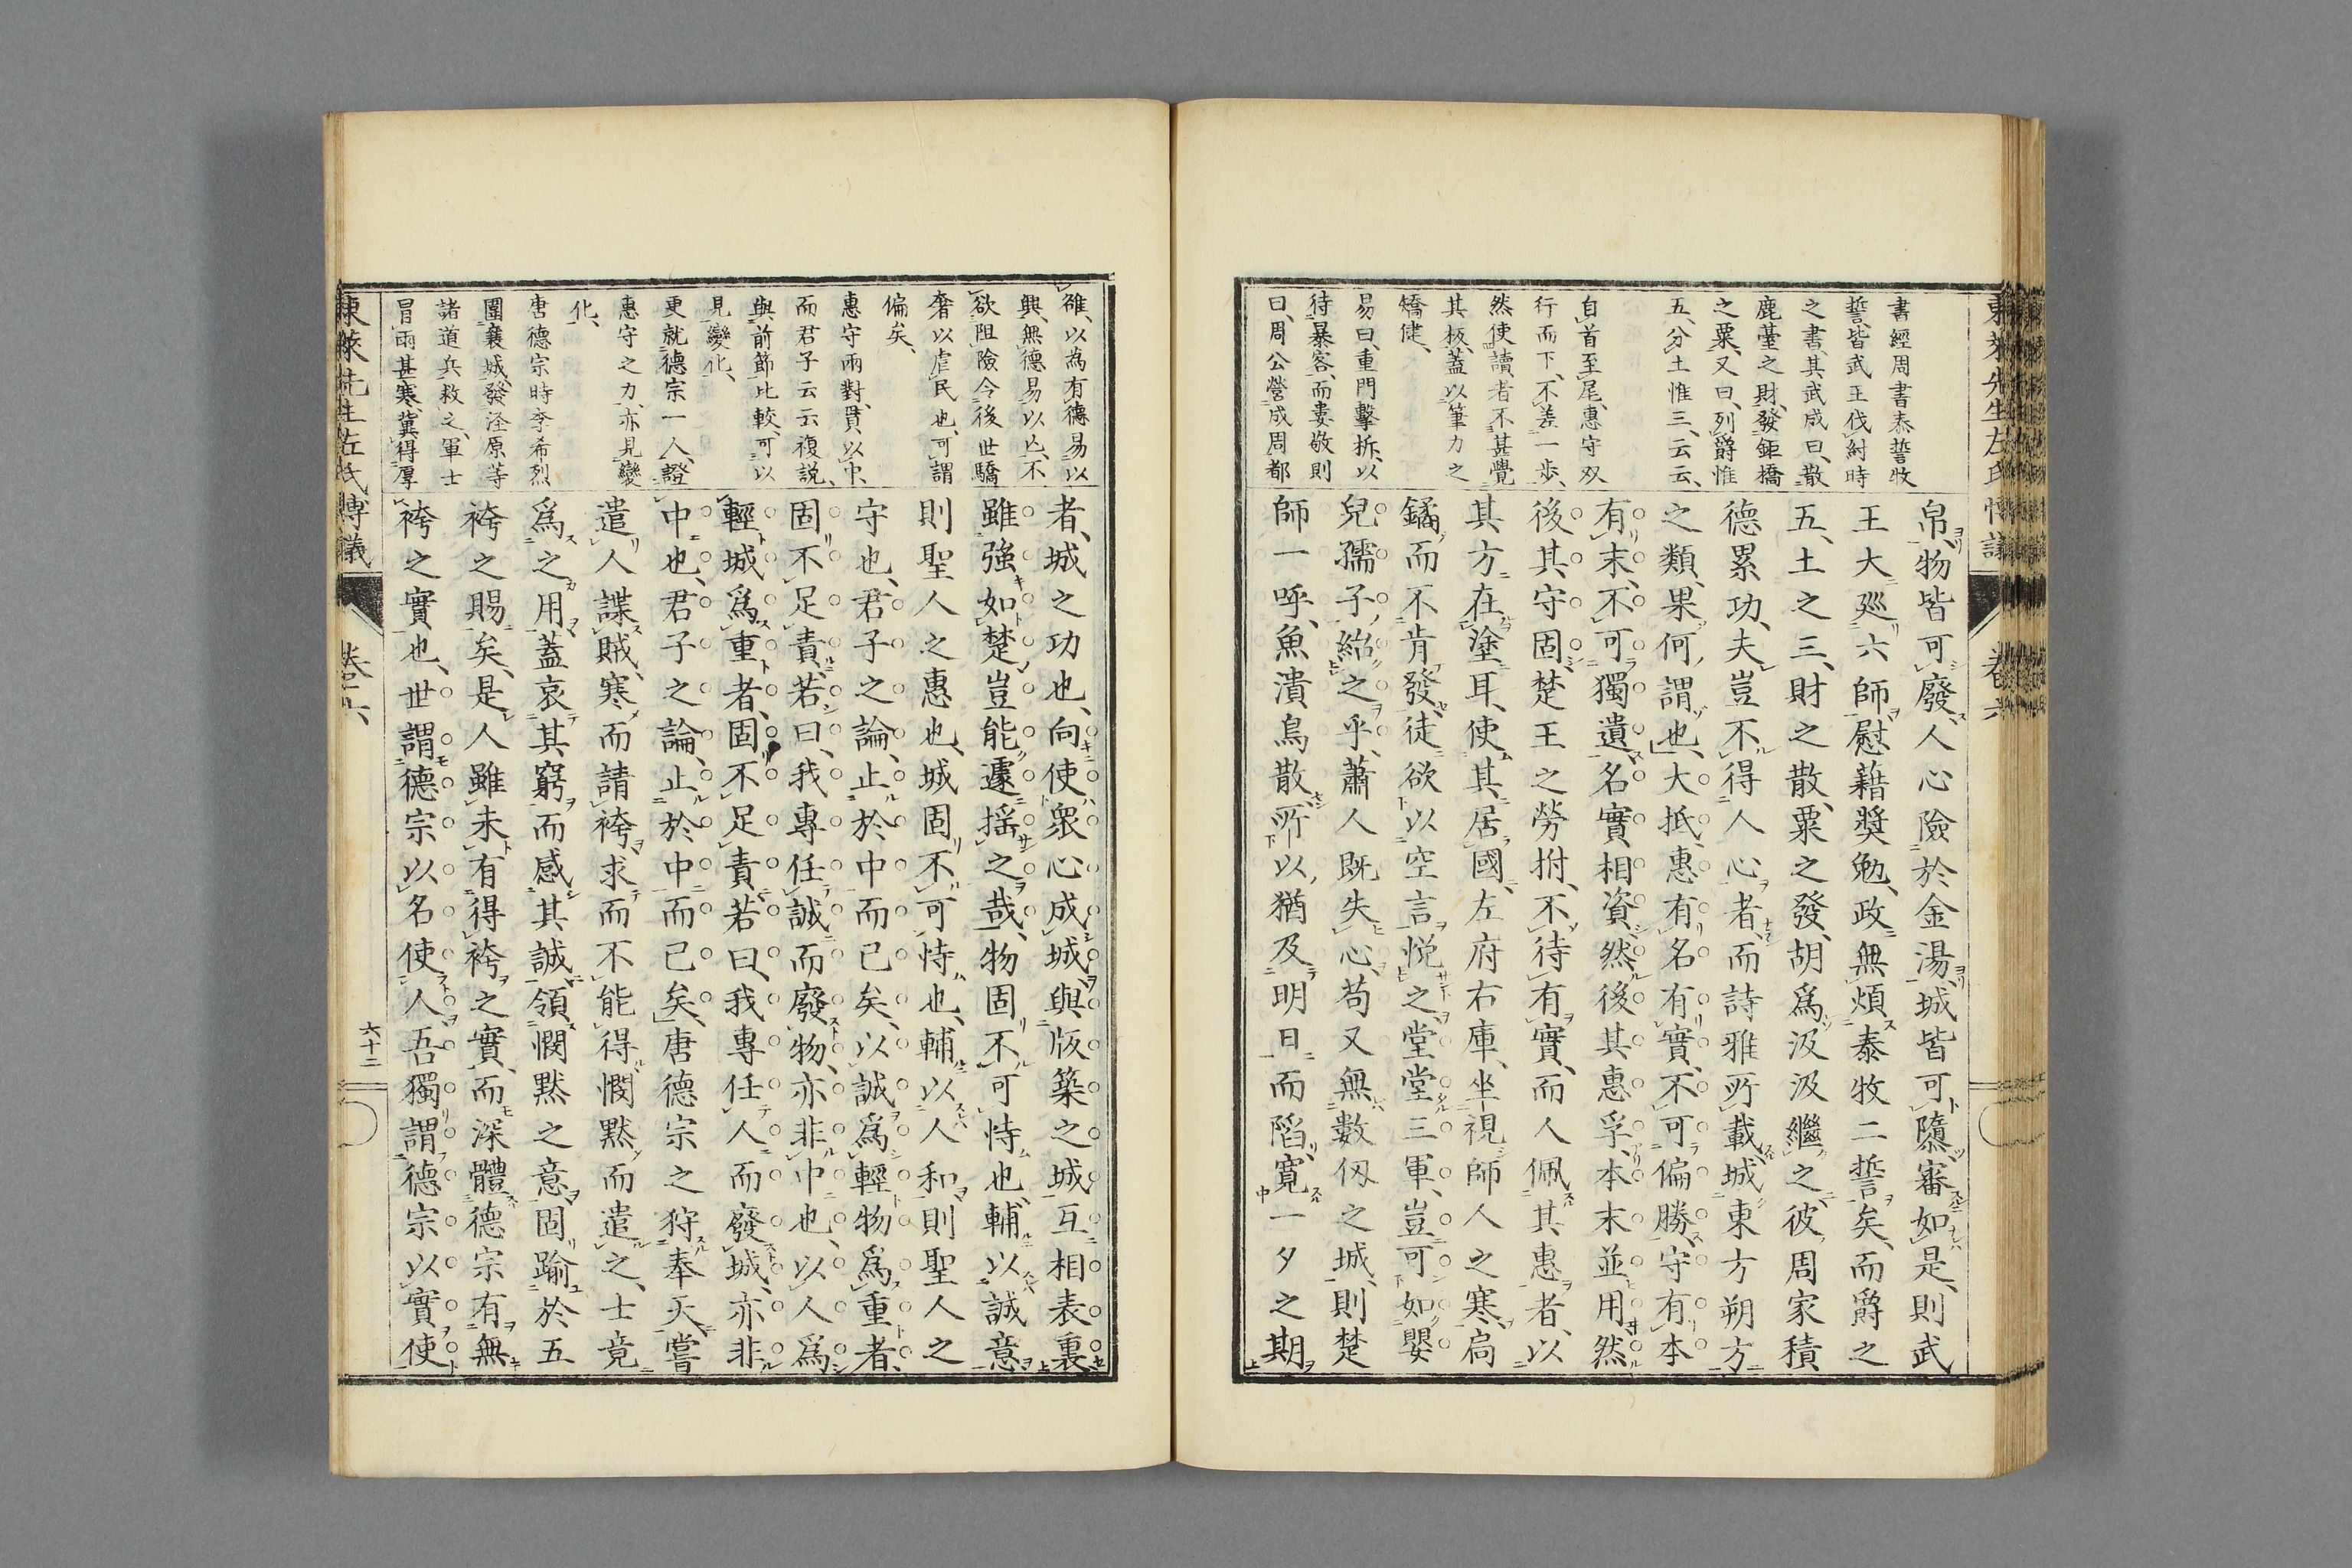 東萊先生左氏博議
卷六
書經周書泰誓牧
誓、皆武王伐紂時
之書、其武成曰、散
鹿臺之財、發鉅橋
之粟、又曰、列爵惟
五、分土惟三、云云、
自首至尾、惠守双
行而下、不差一歩、
然使讀者不甚覺
其板、蓋以筆力之
矯健、
易曰、重門擊柝、以
待暴客、而婁敬則
曰、周公營成周都
帛、物皆可廢、人心險於金湯、城皆可隳、審如是、則武
王大廵六師、慰藉奬勉、政無煩泰牧二誓矣、而爵之
五、土之三、財之散、粟之發、胡爲汲汲繼之、彼周家積
德累功、夫豈不得人心者、而詩雅所載、城東方朔方
之類、果何謂也、大抵、惠有名有實、不可偏勝、守有本
有末、不可獨遺、名實相資、然後其惠孚、本末並用、然
後其守固、楚王之勞拊、不待有實、而人佩其惠者、以
其方在塗耳、使其居國、左府右庫、坐視師人之寒、扃
鐍而不肯發、徒欲以空言悦之、堂堂三軍、豈可如嬰
兒孺子、紿之乎、蕭人既失心、苟又無數仭之城、則楚
師一呼、魚潰鳥散、所以猶及明日而陷、寛一夕之期
者、城之功也、向使衆心成城、與版築之城互相表裏
雖強如楚、豈能遽揺之哉、物固不可恃也、輔以誠意
則聖人之惠也、城固不可恃也、輔以人和、則聖人之
守也、君子之論、止於中而已矣、以誠爲輕物爲重者、
固不足責、若曰、我專任誠而廢物、亦非中也、以人爲
輕城爲重者、固不足責、若曰、我專任人而廢城、亦非
中也、君子之論、止於中而已矣、唐德宗之狩奉天、嘗
遣人諜賊、寒而請袴、求而不能得、憫黙而遣之、士竟
爲之用、蓋哀其窮而感其誠、領憫黙之意、固踰於五
袴之賜矣、是人雖未有得袴之實、而深體德宗有無
袴之實也、世謂德宗以名使人、吾獨謂德宗以實使
雒、以為有德易以
興、無德易以亡、不
欲阻險令後世驕
奢以虐民也、可謂
偏矣、
惠守兩對、貫以中、
而君子云云複説、
與前節比較、可以
見變化、
更就德宗一人、證
惠守之力、亦見變
化、
唐德宗時李希烈
圍襄城、發涇原等
諸道兵救之、軍士
冒雨甚寒、冀得厚
東萊先生左氏博議
卷之六
六十二